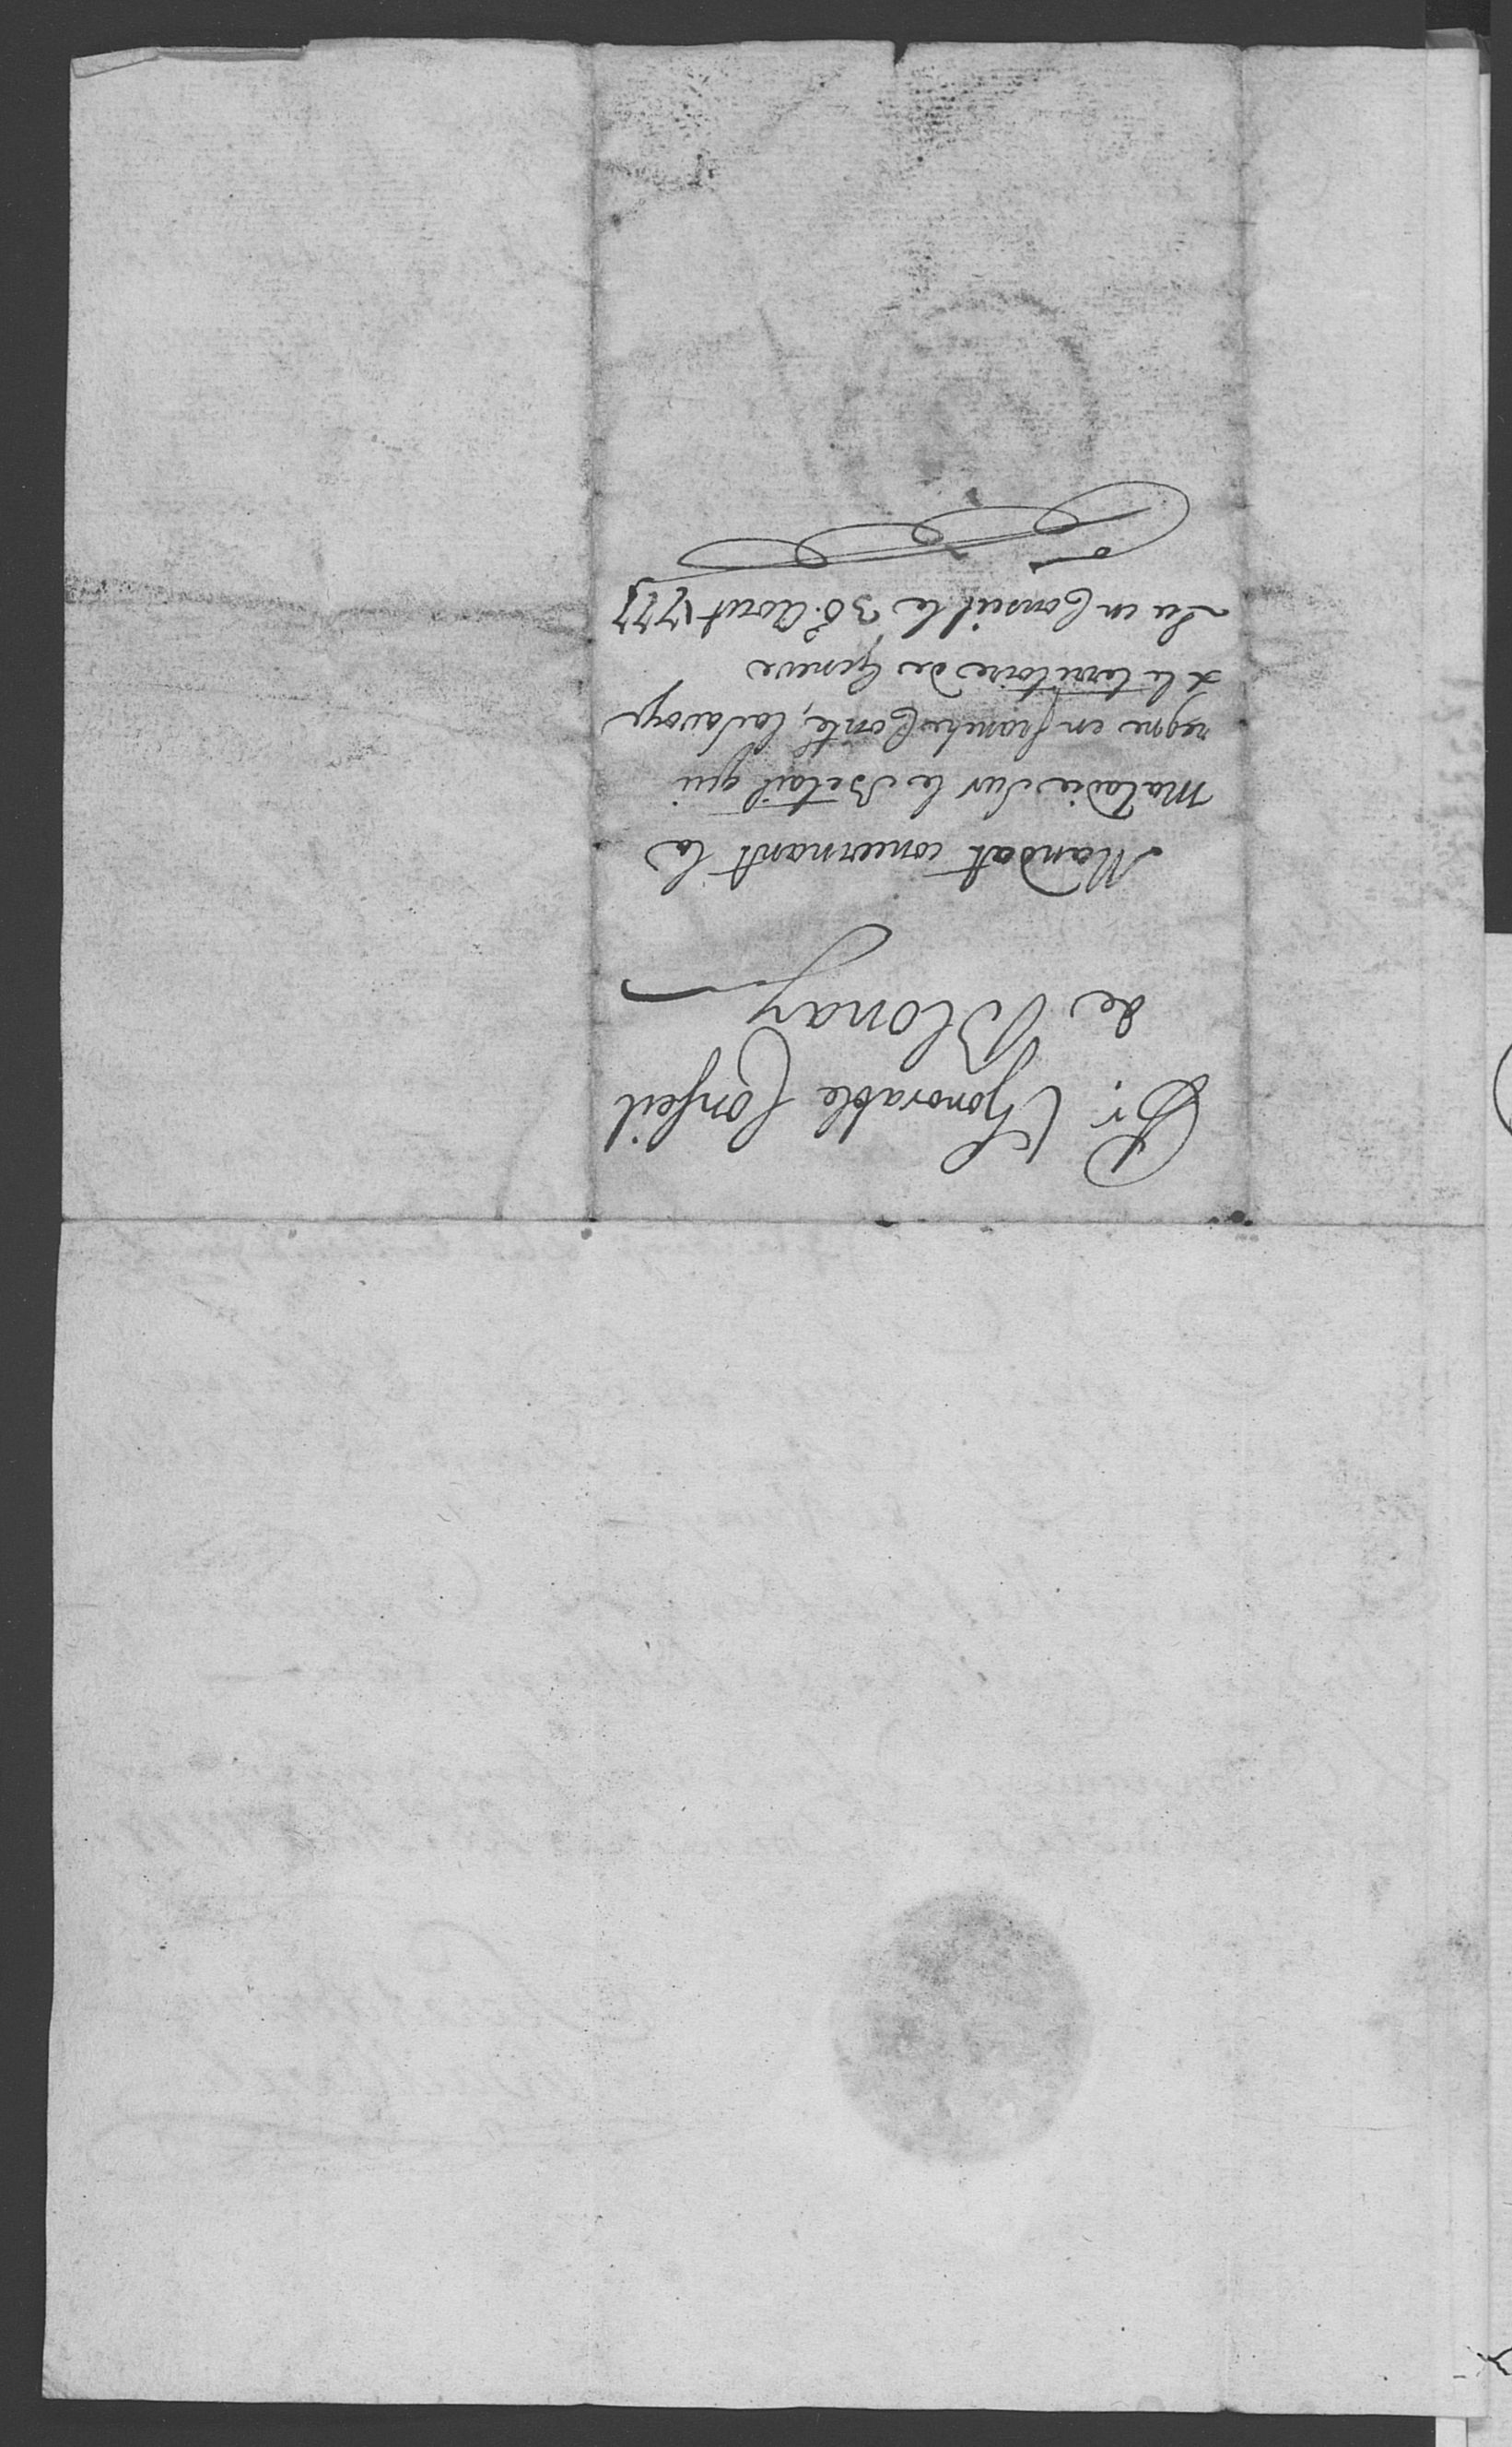 Pr. Lhonorable Conseil
de Blonay
Mandat concernant la
Maladie sur le Bétail qui
regne en franche Conté, la Savoye
& le territoire de Geneve
Lu en Conseil le 30.e Aout 1777